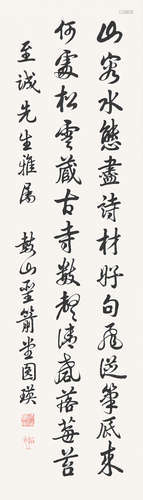 山容水態盡詩材好句飛從筆底來
何處松雲藏古寺數聲清磬落莓苔
至誠先生雅屬　鼓山聖箭堂圓瑛